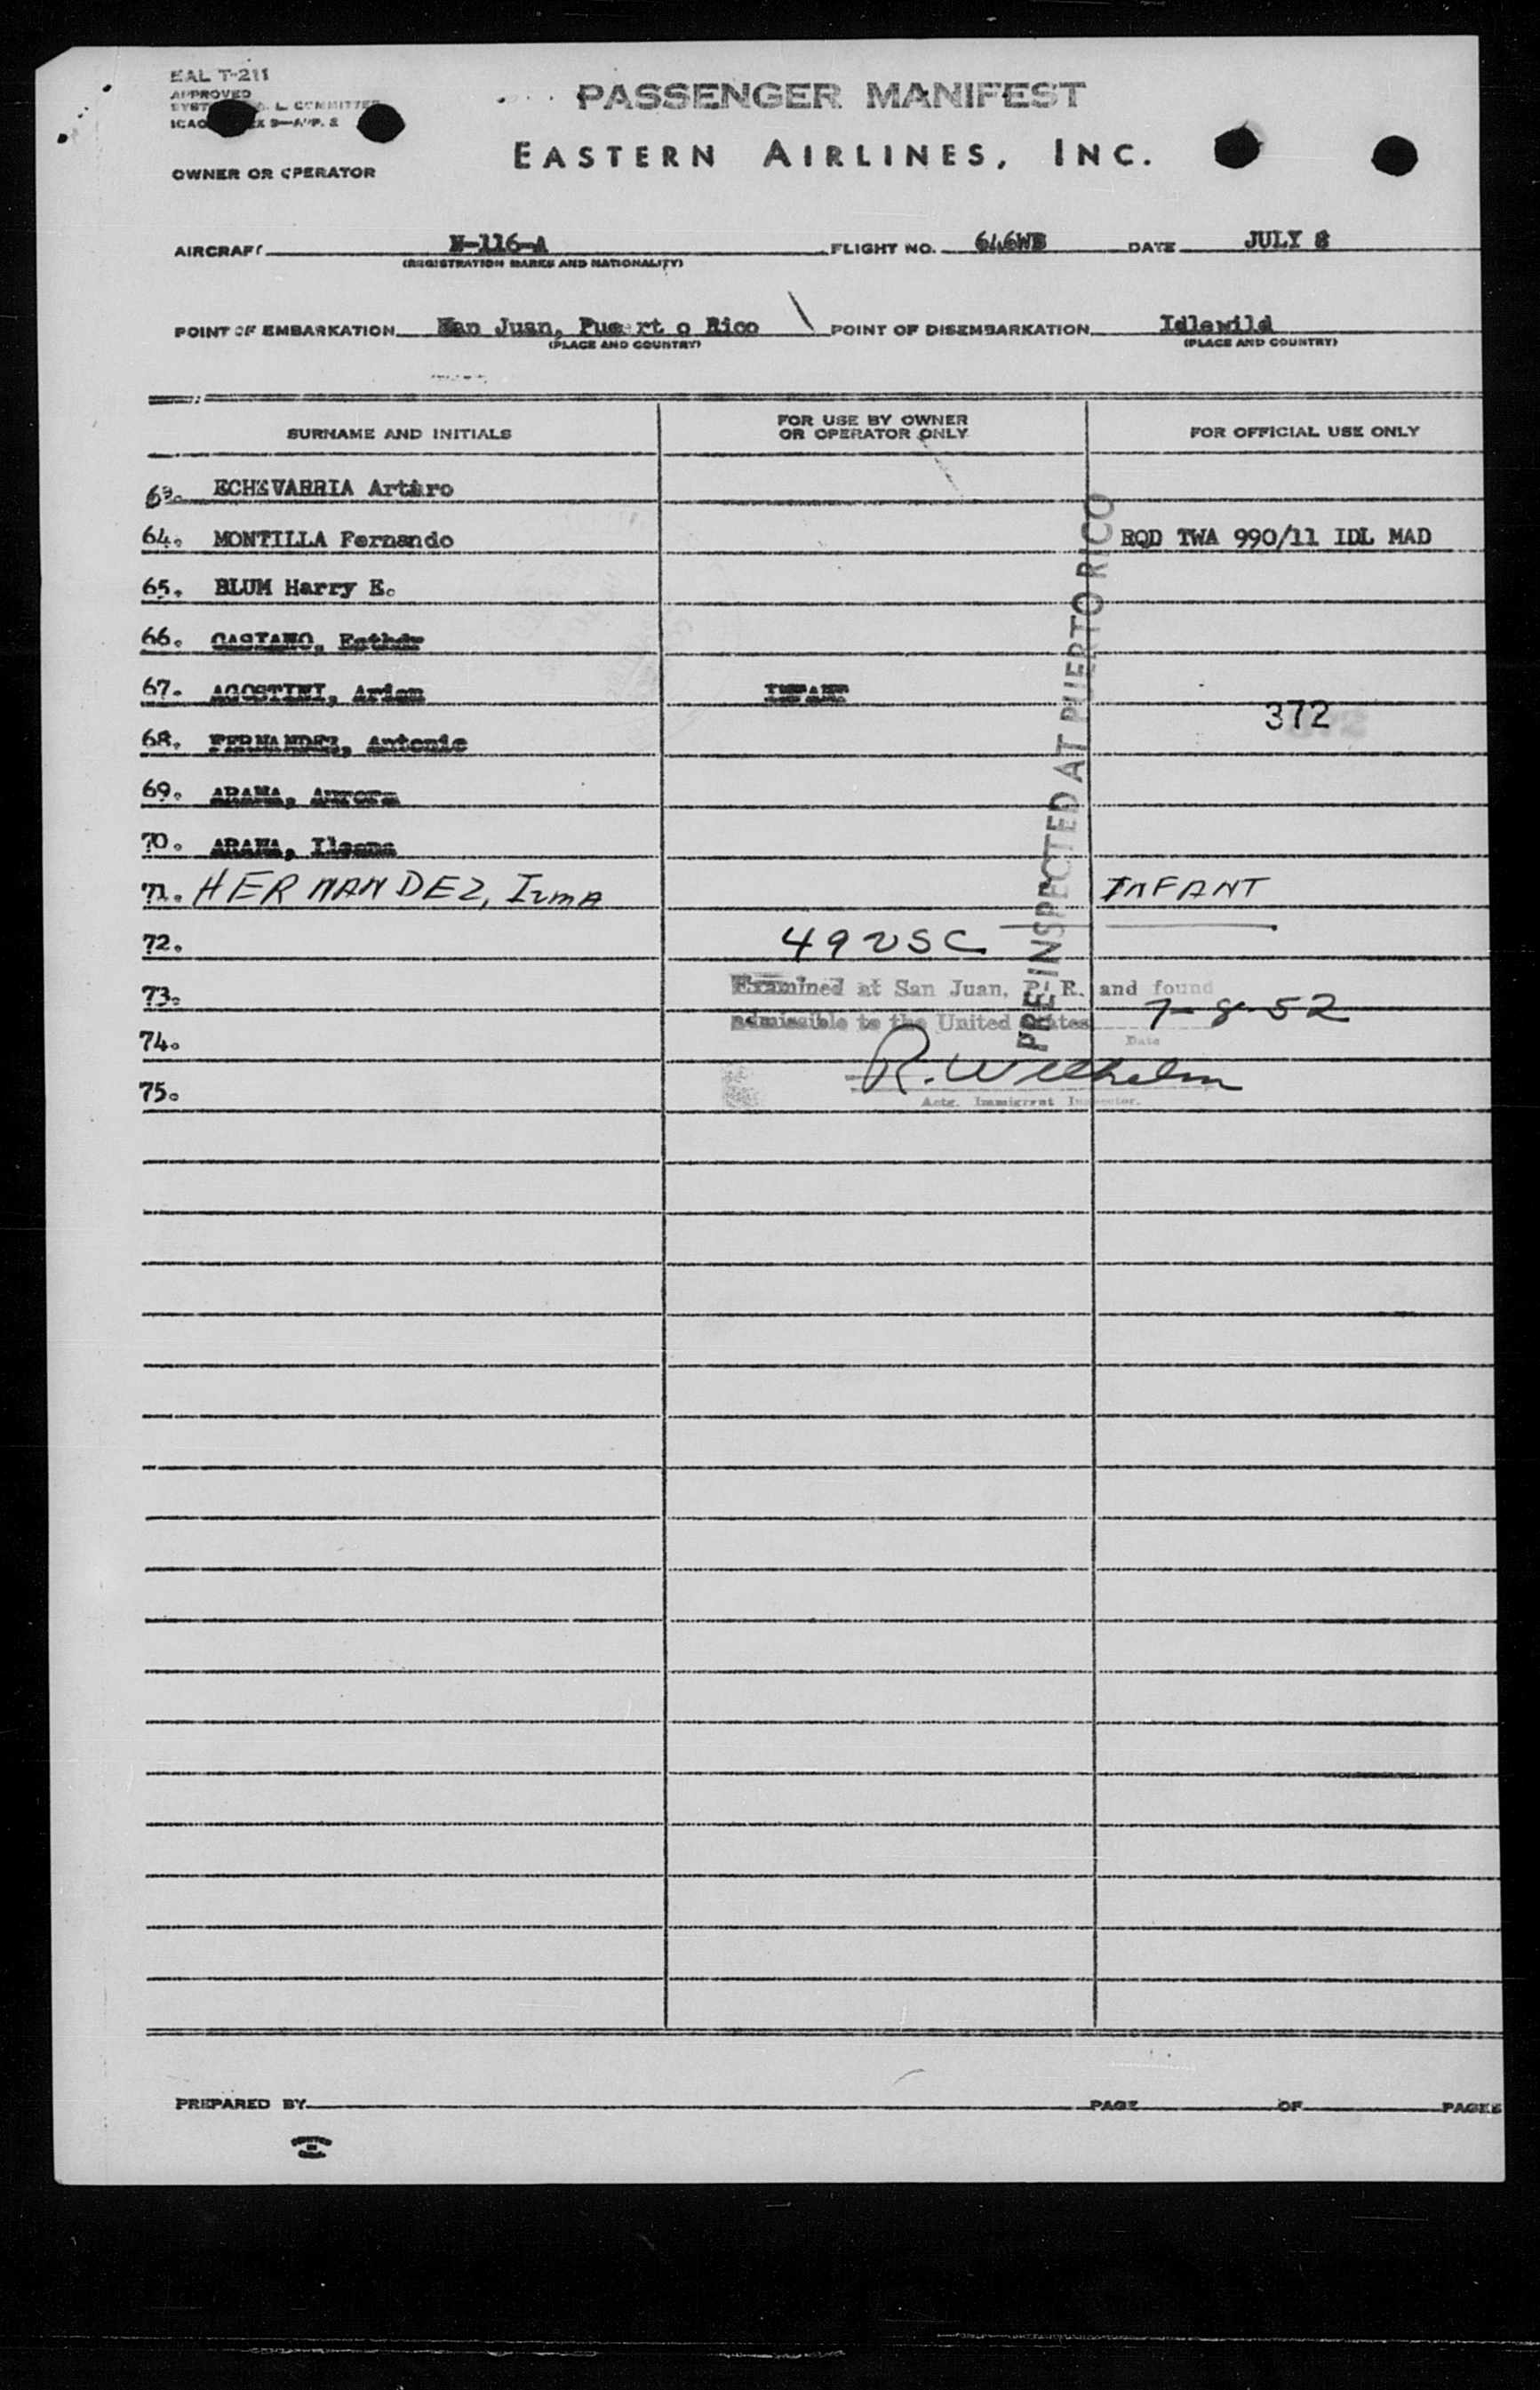 EAL T-211
APPROVED
PASSENGER MANIFEST
EASTERN AIRLINES, INC.
OWNER OR OPERATOR
AIRCRAFT N-116-A FLIGHT NO. 646WB DATE JULY 8
(REGISTRATION MARKS AND NATIONALITY)
POINT OF EMBARKATION San Juan, Puert o Rico POINT OF DISEMBARKATION Idlewild
(PLACE AND COUNTRY) (PLACE AND COUNTRY)
SURNAME AND INITIALS FOR USE BY OWNER OR OPERATOR ONLY FOR OFFICIAL USE ONLY
63. ECHEVARRIA Arturo
64. MONTILLA Fernando RQD TWA 990/11 IDL MAD
65. BLUM Harry E.
66. CASTANO, Esther
67. AGOSTINI, INFANT
372
68. FERNANDEZ, Antonio
69. ARANA, Aurora
70. ARANA, Ileana
71. HERNANDEZ, Irma INFANT
72. 49 USC
73. Examined at San Juan, P. R. and found
admissible to the United States 7-8-52
Date
74. R. Wilhelm
75. Actg. Immigrant Inspector.
PRE-INSPECTED AT PUERTO RICO
PREPARED BY PAGE OF PAGES